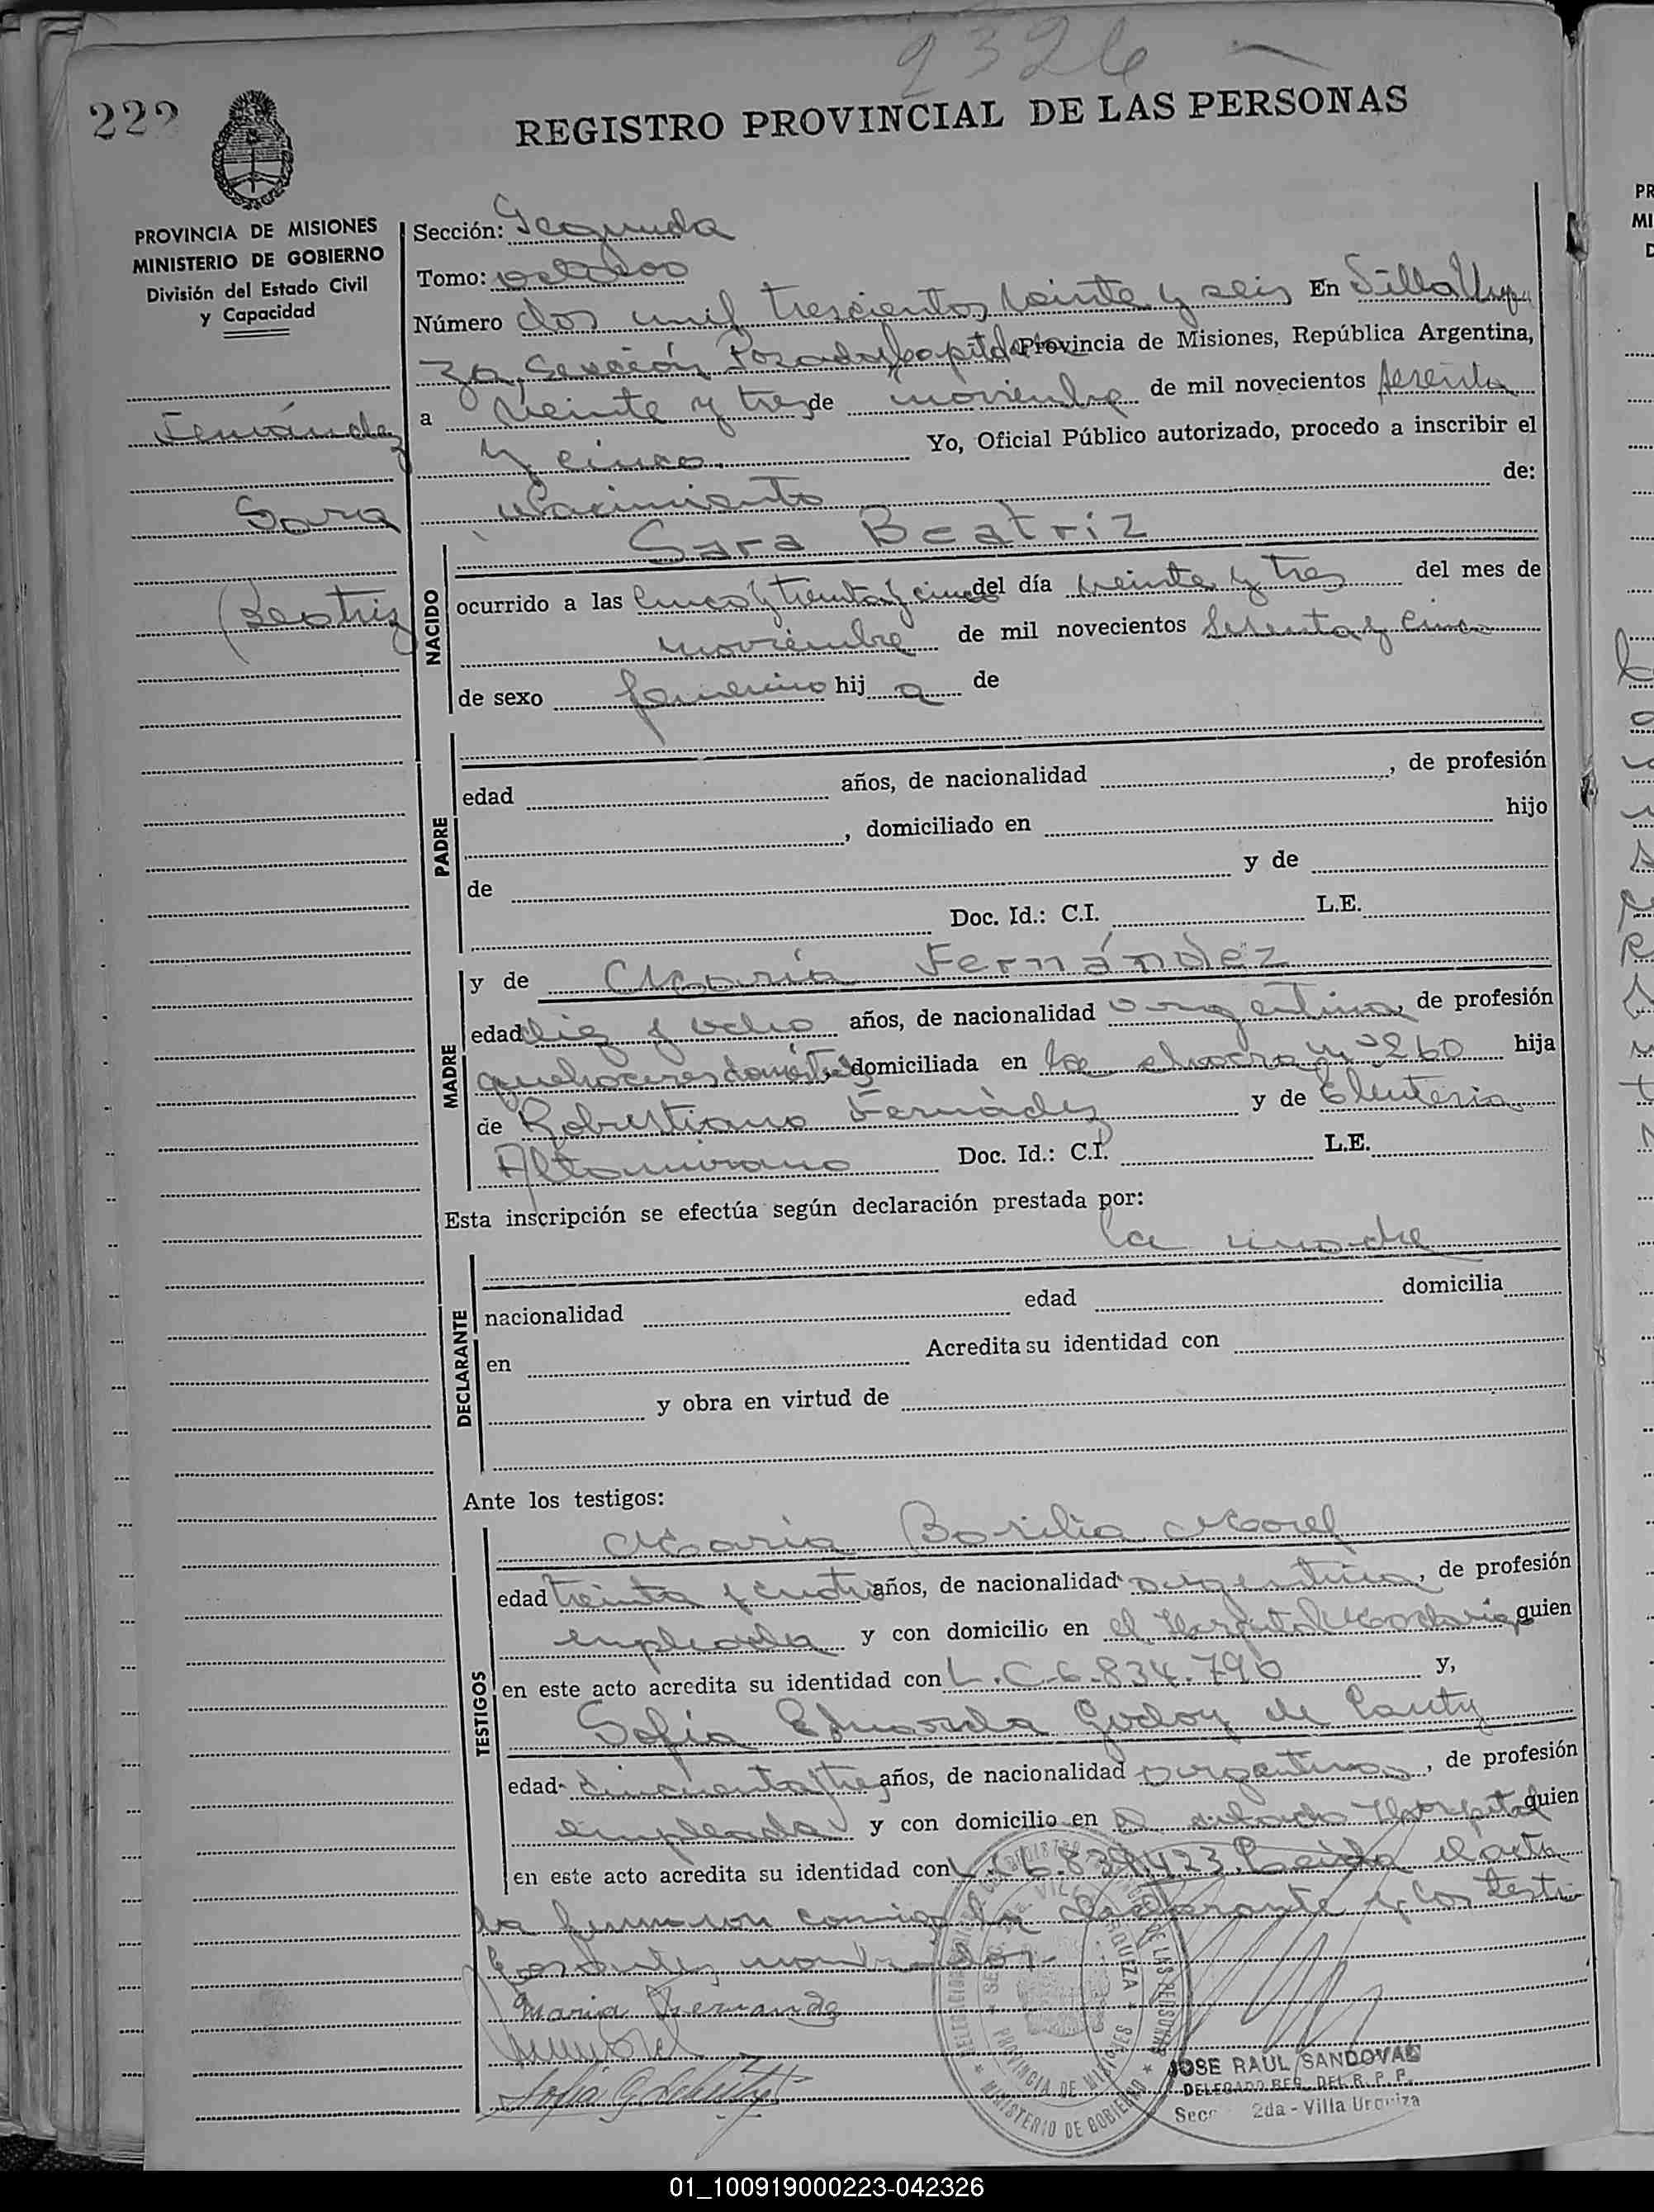 2326
222
REGISTRO PROVINCIAL DE LAS PERSONAS
PROVINCIA DE MISIONES
MINISTERIO DE GOBIERNO
División del Estado Civil
y Capacidad
Fernández
Sara
Beatriz
Sección: Segunda
Tomo: octavo
Número dos mil trescientos veinte y seis En Villa Urqui
za, Sección Posadas Capital Provincia de Misiones, República Argentina,
a veinte y tres de noviembre de mil novecientos sesenta
y cinco. Yo, Oficial Público autorizado, procedo a inscribir el
Nacimiento de:
NACIDO
Sara Beatriz
ocurrido a las cinco y treinta y cinco del día veinte y tres del mes de
noviembre de mil novecientos sesenta y cinco
de sexo femenino hij a de
PADRE
edad años, de nacionalidad , de profesión
, domiciliado en hijo
de y de
Doc. Id.: C.I. L.E.
MADRE
y de María Fernández
edad diez y ocho años, de nacionalidad argentina, de profesión
quehaceres domésticos domiciliada en la chacra Nº 260 hija
de Robustiano Fernández y de Eleuteria
Altamirano Doc. Id.: C.I. L.E.
Esta inscripción se efectúa según declaración prestada por:
la madre
DECLARANTE
nacionalidad edad domicilia
en Acredita su identidad con
y obra en virtud de
Ante los testigos:
TESTIGOS
María Basilia Morel
edad treinta y cuatro años, de nacionalidad argentina, de profesión
empleada y con domicilio en el Hospital Madariaga quien
en este acto acredita su identidad con L.C.6.834.796 y,
Sofía Eduarda Godoy de
edad cincuenta y tres años, de nacionalidad argentina, de profesión
empleada y con domicilio en Hospital quien
en este acto acredita su identidad con L.C.6.839.423. Leída el acta
la firmaron conmigo la declarante y los testi
gos antes nombrados.-
Maria Fernande
JOSE RAUL SANDOVAL
DELEGADO REG. DEL R. P. P.
Secc 2da - Villa Urquiza
PROVINCIA DE MISIONES
MINISTERIO DE GOBIERNO
DE LAS PERSONAS
01_100919000223-042326